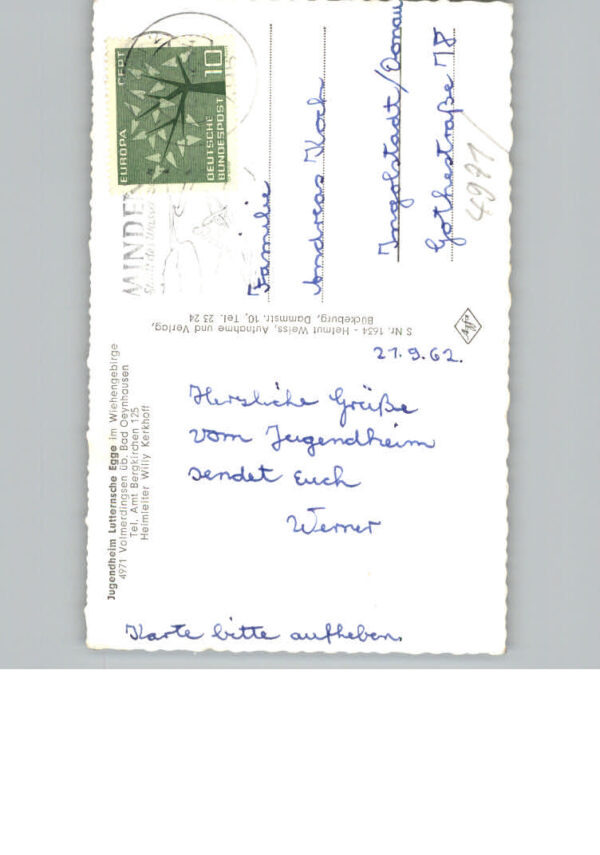 Jugendheim Lutternsche Egge im Wiehengebirge
4971 Volmerdingsen üb. Bad Oeynhausen
Tel. Amt Bergkirchen 125
Heimleiter Willy Kerkhoff
EUROPA CEPT
10
DEUTSCHE
BUNDESPOST
MINDEN
Familie
Andreas Koch
Ingolstadt/Donau
Gothestraße 78
4971/
S Nr. 1634 - Helmut Weiss, Aufnahme und Verlag,
Bückeburg, Dammstr. 10, Tel. 23 24
Agfa
21.9.62.
Herzliche Grüße
vom Jugendheim
sendet Euch
Werner
Karte bitte aufheben.